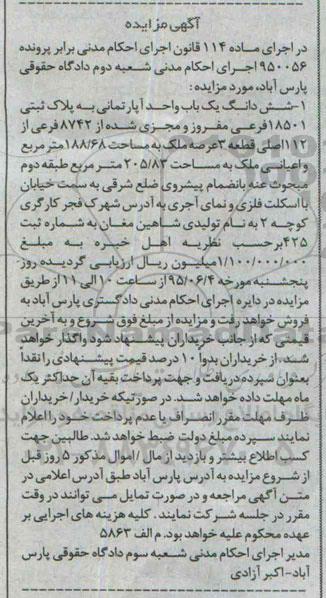 آگهی مزایده
در اجرای ماده ۱۱۴ قانون اجرای احکام مدنی برابر پرونده
۹۵۰۰۵۶ اجرای احکام مدنی شعبه دوم دادگاه حقوقی
پارس آباد، مورد مزایده:
۱-شش دانگ یک باب واحد آپارتمانی به پلاک ثبتی
۱۸۵۰۱فرعی مفروز و مجزی شده از ۸۷۴۲ فرعی از
۱۱۲اصلی قطعه ۳عرصه ملک به مساحت ۱۸۸/۶۸متر مربع
و اعیانی ملک به مساحت ۲۰۵/۸۳ متر مربع طبقه دوم
مبحوث عنه بانضمام پیشروی ضلع شرقی به سمت خیابان
با اسکلت فلزی و نمای آجری به آدرس شهرک فجر کارگری
کوچه ۲ به نام تولیدی شاهین مغان به شماره ثبت
۴۲۵برحسب نظریه اهل خبره به مبلغ
۱/۱۰۰/۰۰۰/۰۰۰میلیون ریال ارزیابی گردیده روز
پنجشنبه مورخه ۹۵/۰۶/۴ از ساعت ۱۰ الی ۱۱ از طریق
مزایده در دایره اجرای احکام مدنی دادگستری پارس آباد به
فروش خواهد رفت و مزایده از مبلغ فوق شروع و به آخرین
قیمتی که از جانب خریداران پیشنهاد شود واگذار خواهد
شد، از خریداران بدوا ۱۰ درصد قیمت پیشنهادی را نقداً
بعنوان سپرده دریافت و جهت پرداخت بقیه آن حداکثر یک
ماه مهلت داده خواهد شد. در صورتیکه خریدار/ خریداران
ظرف مهلت مقرر انصراف یا عدم پرداخت خود را اعلام
نمایند سپرده مبلغ دولت ضبط خواهد شد. طالبین جهت
کسب اطلاع بیشتر و بازدید از مال /اموال مذکور ۵ روز قبل
از شروع مزایده به آدرس پارس آباد طبق آدرس اعلامی در
متن آگهی مراجعه و در صورت تمایل می توانند در وقت
مقرر در جلسه شرکت نمایند. کلیه هزینه های اجرایی بر
عهده محکوم علیه خواهد بود. م الف ۵۸۶۳
مدیر اجرای احکام مدنی شعبه سوم دادگاه حقوقی پارس
آباد-اکبر آزادی